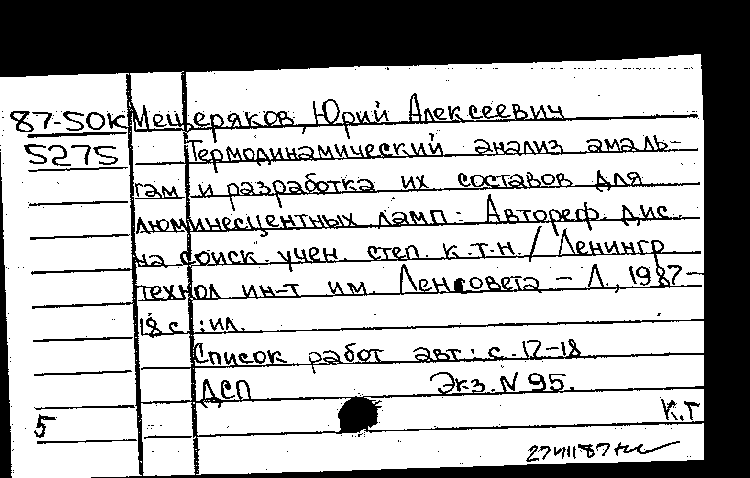 87-50К Мещеряков, Юрий Алексеевич
5275 Термодинамический анализ амаль-
гам и разработка их составов для
люминесцентных ламп: Автореф. дис
на соиск. учен. степ. к.т.н. / Ленингр
технол ин-т им. Ленсовета – Л., 1987–
18 с.: ил.
Список работ авт.: с. 17–18
ДСП Экз. N 95.
5 К.Г
27 VIII 87